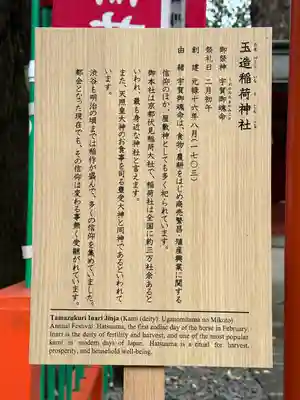 玉造稲荷神社
御祭神 宇賀御魂命
祭礼日 二月初午
創建 元禄十六年八月(一七〇三)
由緒 宇賀御魂命は、食物・農耕をはじめ商売繁昌・殖産興業に関する
信仰のほか、屋敷神としても多く祀られています。
御本社は京都伏見稲荷大社で、稲荷社は全国に約三万社余あると
いわれ、最も身近な神社と言えます。
また、天照皇大神のお食事を司る豊受大神と同神であるといわれて
います。
渋谷も明治の頃までは稲作が盛んで、多くの信仰を集めていました。
都会となった現在でも、その信仰は変わる事無く受継がれています。
Tamazukuri Inari Jinja (Kami (deity): Uganomitama no Mikoto)
Annual Festival: Hatsuuma, the first zodiac day of the horse in February.
Inari is the deity of fertility and harvest, and one of the most popular
kami in modern days of Japan. Hatsuuma is a ritual for harvest,
prosperity, and household well-being.